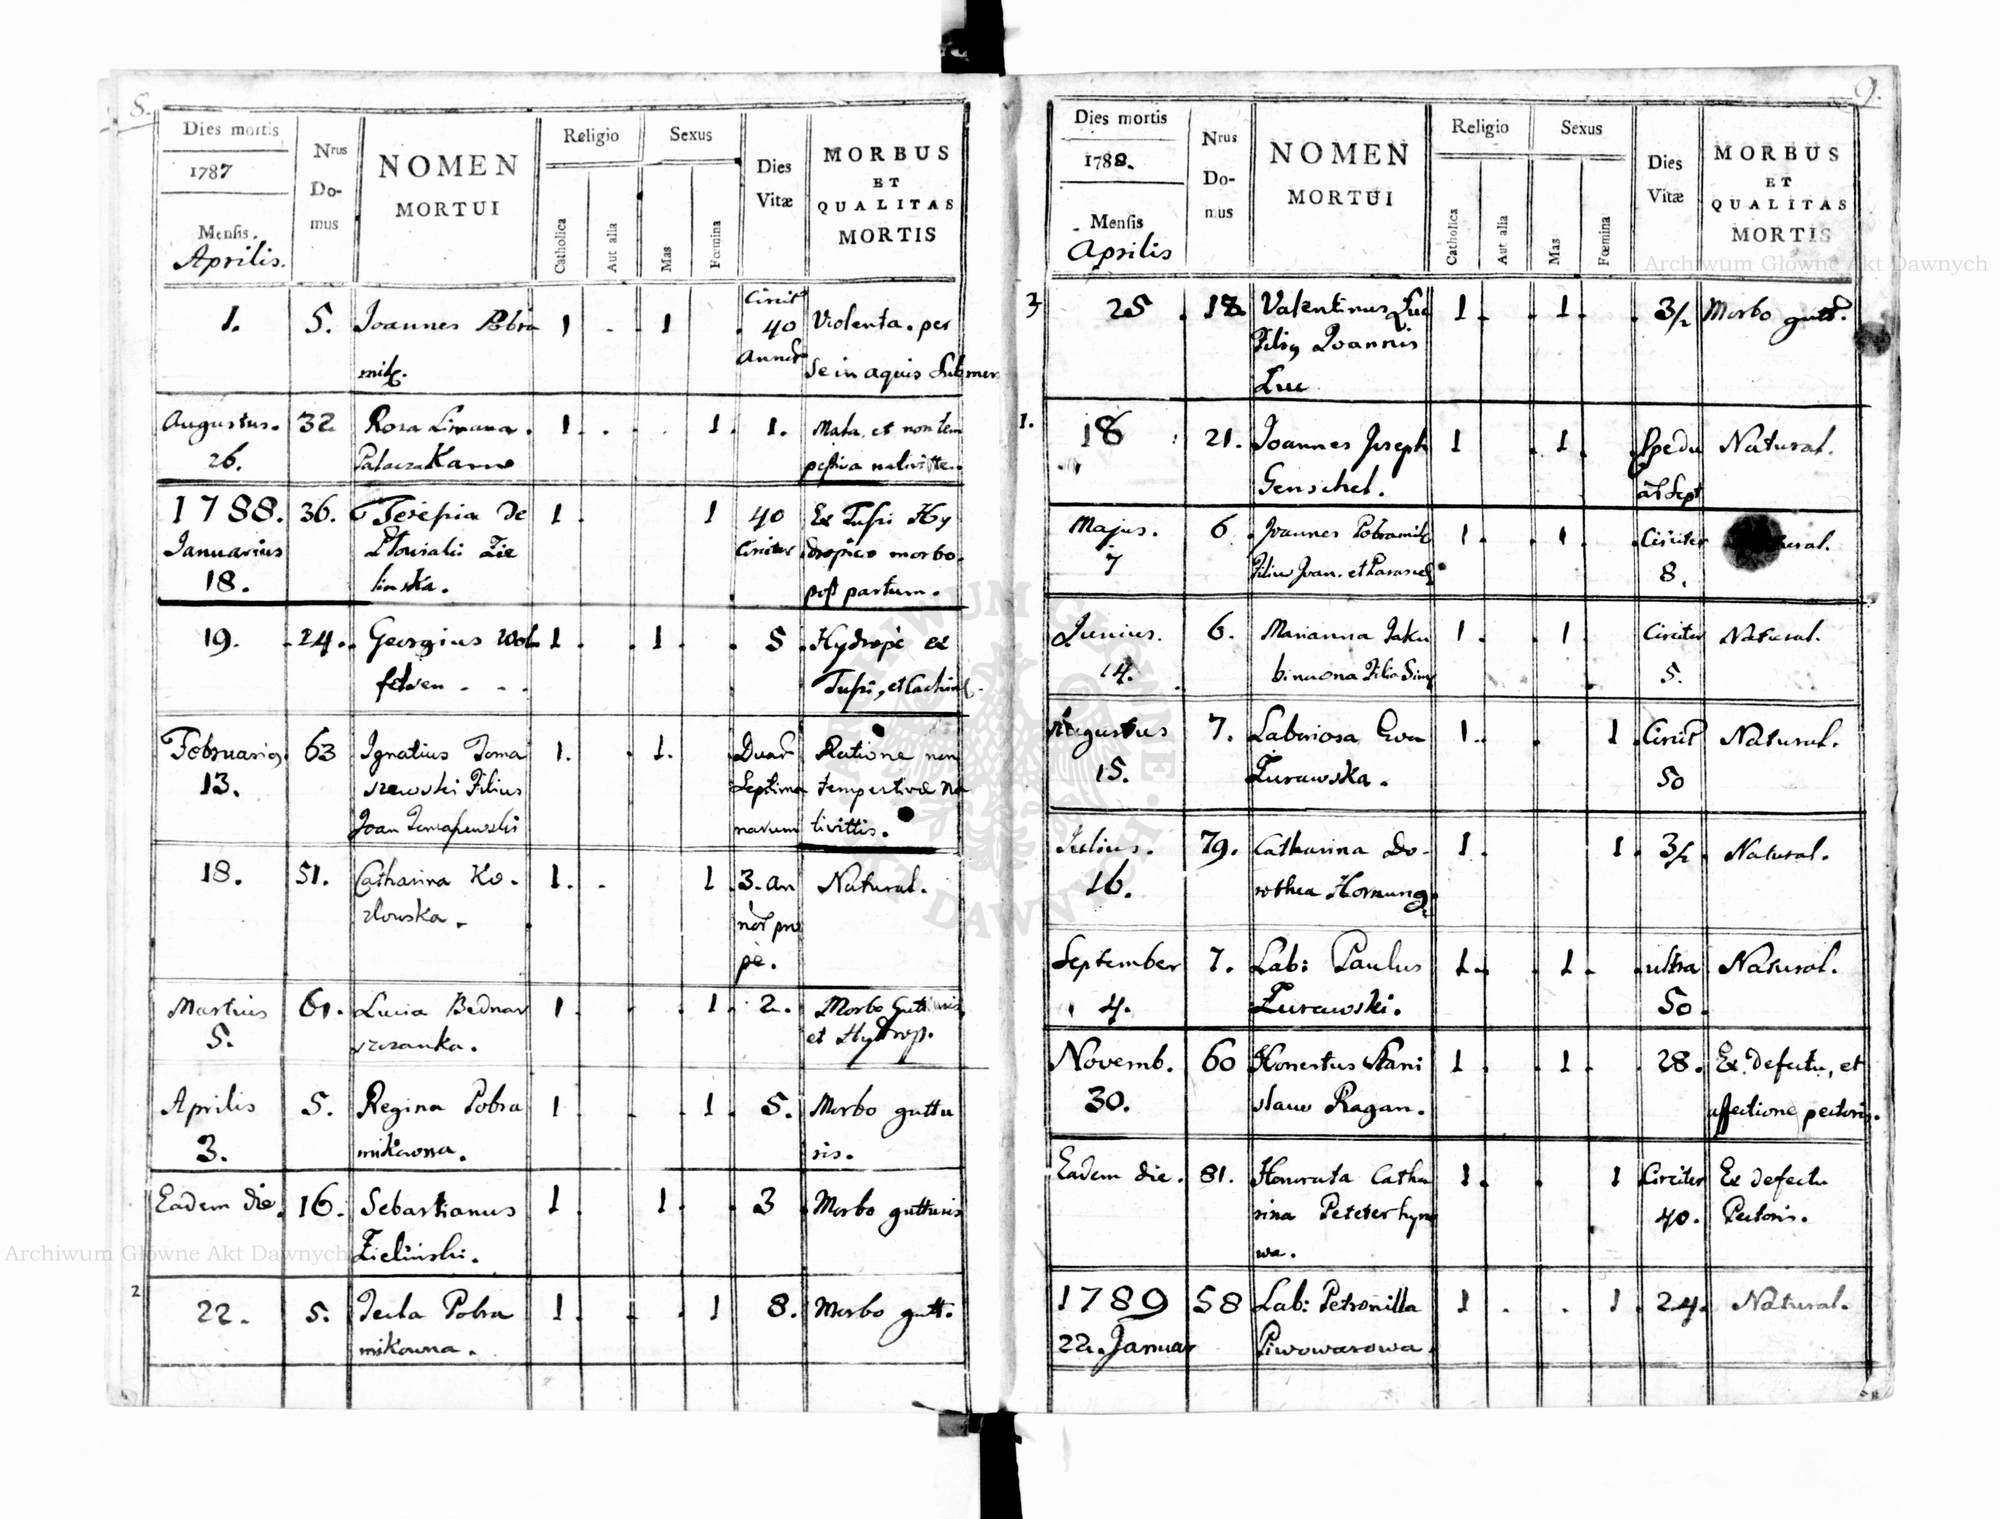 8.
Dies mortis
1787
Mensis.
Aprilis.
Nrus
Do-
mus
NOMEN
MORTUI
Religio
Catholica
Aut alia
Sexus
Mas
Fœmina
Dies
Vitæ
MORBUS
ET
QUALITAS
MORTIS
1. 5. Joannes Pobra 1 . 1 . 40 Violenta. per
se in aquis Submer
Augustus. 32 Rosa 1 . . 1. 1. Mala et non tem
26. pestiva
1788. 36. Teresia De 1. 1 40 Ex Tussi Hy
Januarius Zie Circiter dropico morbo.
18. linska. post partum.
19. 24. Georgius Wol 1. 1. 5 Hydrope ex
Tussi, et
63 Ignatius Toma 1. 1. Ratione non
13. szewski Filius Septima tempestivæ Na
Joan Tomaszewski narum
18. 51. Catharina Ko- 1. . 1 3. an Natural.
zlowska.
pe.
Martius 61. Lucia Bednar 1. 1. 2. Morbo Gutturis
5. szczanka. et Hydrop.
Aprilis 5. Regina Pobra 1 1. 5. Morbo guttu
3. mikowna. ris.
Eadem die. 16. Sebastianus 1. 1. 3 Morbo gutturis
Zielinski.
2
22. 5. Tecla Pobra 1. 1 8. Morbo gutt.
mikowna.
9.
Dies mortis
1788.
Mensis
Aprilis
Nrus
Do-
mus
NOMEN
MORTUI
Religio
Catholica
Aut alia
Sexus
Mas
Fœmina
Dies
Vitæ
MORBUS
ET
QUALITAS
MORTIS
3 25 18 Valentinus Luc 1. 1. 3/2 Morbo gutt.
Joannis
Luc
1. 18 21. Joannes Joseph 1 1. Natural.
Genschel.
Majus. 6 Joannes Pobramik 1. 1. Circiter
7 8.
Junius. 6. Marianna Jaku 1. 1. Circiter Natural.
14. 5.
Augustus 7. Laboriosa Eva 1. 1 Natural.
15. Zurawska. 50
Julius. 79. Catharina Do- 1. 1. 3/2 Natural.
16. rothea Hornung.
September 7. Lab: Paulus 1. 1. ultra Natural.
4. Zurawski. 50.
Novemb. 60 Honestus Stani 1. 1. 28. Ex Defectu, et
30. slaus Ragan. affectione pectoris.
Eadem die. 81. Honorata Catha 1. 1 Circiter Ex defectu
rina 40. Pectoris.
wa.
1789 58 Lab: Petronilla 1. 1. 24. Natural.
22. Januar Piwowarowa.
Archiwum Główne Akt Dawnych
Archiwum Główne Akt Dawnych
ARCHIWUM GŁÓWNE AKT DAWNYCH